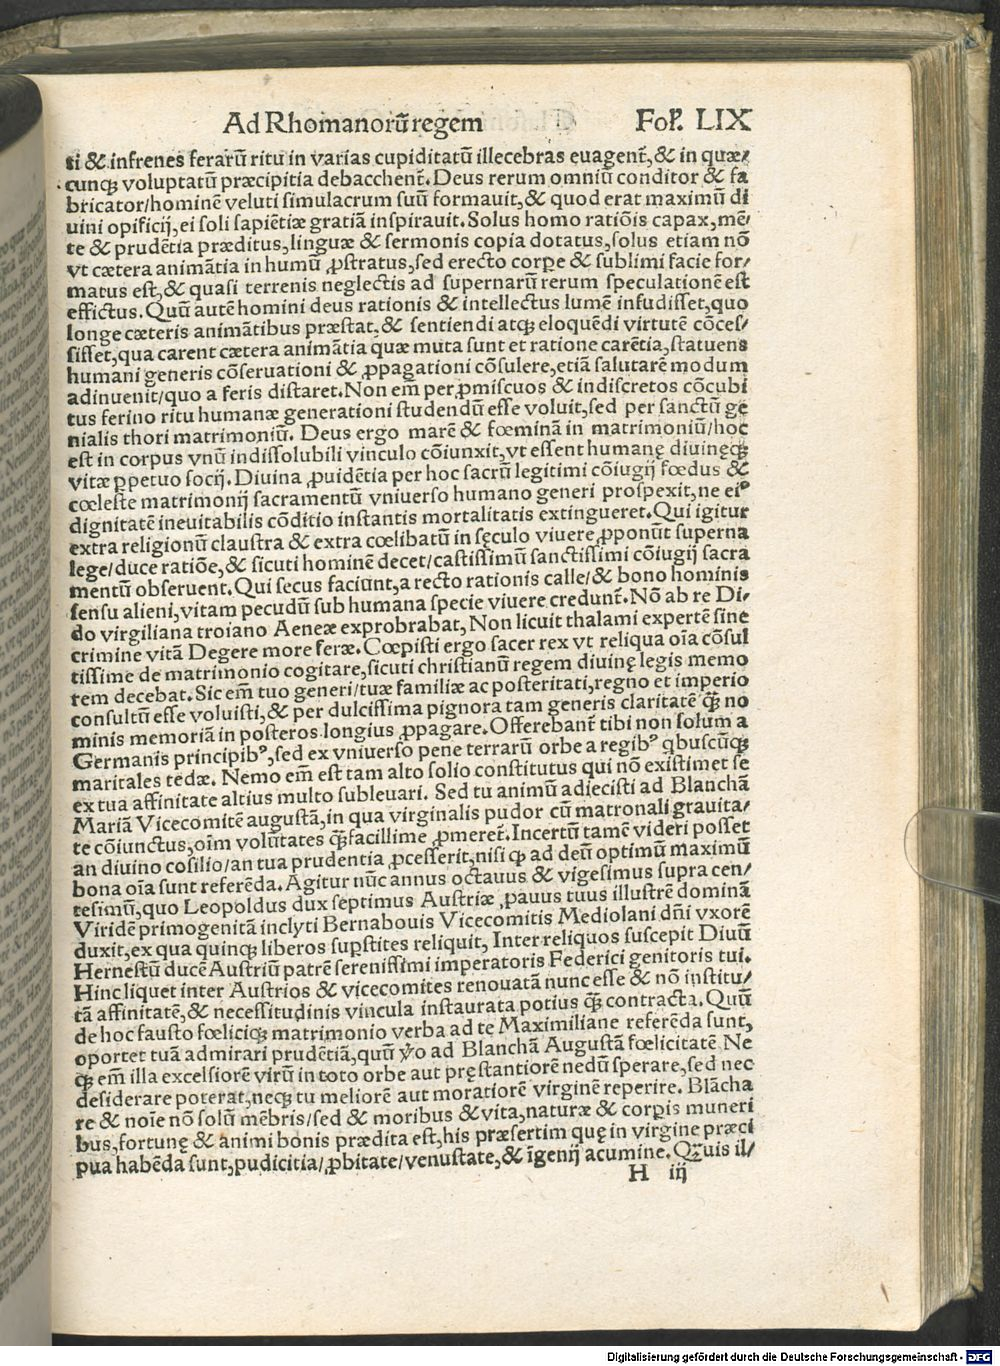 Ad Rhomanorū regem Fol. LIX
ti & infrenes ferarū ritu in varias cupiditatū illecebras euagent̃, & in quæ/
cunq; voluptatū præcipitia debacchent̃. Deus rerum omniū conditor & fa
bricator/hominē veluti simulacrum suū formauit, & quod erat maximū di
uini opificij, ei soli sapiētiæ gratiā inspirauit. Solus homo ratiōis capax, mē/
te & prudētia præditus, linguæ & sermonis copia dotatus, solus etiam nō
vt cætera animātia in humū ꝓstratus, sed erecto corpe & sublimi facie for/
matus est, & quasi terrenis neglectis ad supernarū rerum speculationē est
effictus. Quū autē homini deus rationis & intellectus lumē infudisset, quo
longe cæteris animātibus præstat, & sentiendi atq; eloquēdi virtutē cōces/
sisset, qua carent cætera animātia quæ muta sunt et ratione carētia, statuens
humani generis cōseruationi & ꝓpagationi cōsulere, etiā salutarē modum
adinuenit/quo a feris distaret. Non em̃ per ꝓmiscuos & indiscretos cōcubi
tus ferino ritu humanæ generationi studendū esse voluit, sed per sanctū ge
nialis thori matrimoniū. Deus ergo marē & fœminā in matrimoniū/hoc
est in corpus vnū indissolubili vinculo cōiunxit, vt essent humanę diuinęq;
vitæ ꝑpetuo socij. Diuina ꝓuidētia per hoc sacrū legitimi cōiugij fœdus &
cœleste matrimonij sacramentū vniuerso humano generi prospexit, ne eiꝰ
dignitatē ineuitabilis cōditio instantis mortalitatis extingueret. Qui igitur
extra religionū claustra & extra cœlibatū in sęculo viuere ꝓponūt superna
lege/duce ratiōe, & sicuti hominē decet/castissimū sanctissimi cōiugij sacra
mentū obseruent. Qui secus faciūnt, a recto rationis calle/& bono hominis
sensu alieni, vitam pecudū sub humana specie viuere credunt̃. Nō ab re Di/
do virgiliana troiano Aeneæ exprobrabat, Non licuit thalami expertē sine
crimine vitā Degere more feræ. Cœpisti ergo sacer rex vt reliqua oīa cōsul
tissime de matrimonio cogitare, sicuti christianū regem diuinę legis memo
rem decebat. Sic em̃ tuo generi/tuæ familiæ ac posteritati, regno et imperio
consultū esse voluisti, & per dulcissima pignora tam generis claritatē q̄ no
minis memoriā in posteros longius ꝓpagare. Offerebant̃ tibi non solum a
Germanis principibꝰ, sed ex vniuerso pene terrarū orbe a regibꝰ qbuscūq;
maritales tedæ. Nemo em̃ est tam alto solio constitutus qui nō existimet se
ex tua affinitate altius multo subleuari. Sed tu animū adiecisti ad Blanchā
Mariā Vicecomitē augustā, in qua virginalis pudor cū matronali grauita/
te cōiunctus, oīm volūtates q̄ facillime ꝓmeret̃. Incertū tamē videri posset
an diuino cōsilio/an tua prudentia ꝓcesserit, nisi ꝙ ad deū optimū maximū
bona oīa sunt referēda. Agitur nūc annus octauus & vigesimus supra cen/
tesimū, quo Leopoldus dux septimus Austriæ ꝓauus tuus illustrē dominā
Viridē primogenitā inclyti Bernabouis Vicecomitis Mediolani dñi vxorē
duxit, ex qua quinq; liberos suꝑstites reliquit, Inter reliquos suscepit Diuū
Hernestū ducē Austriū patrē serenissimi imperatoris Federici genitoris tui.
Hinc liquet inter Austrios & vicecomites renouatā nunc esse & nō institu/
tā affinitatē, & necessitudinis vincula instaurata potius q̄ contracta. Quū
de hoc fausto fœliciq; matrimonio verba ad te Maximiliane referēda sunt,
oportet tuā admirari prudētiā, quū ṽo ad Blanchā Augustā fœlicitatē Ne
q; em̃ illa excelsiorē virū in toto orbe aut pręstantiorē nedū sperare, sed nec
desiderare poterat, neq; tu meliorē aut moratiorē virginē reperire. Blācha
re & noīe nō solū mēbris/sed & moribus & vita, naturæ & corꝑis muneri
bus, fortunę & animi bonis prædita est, his præsertim quę in virgine præci
pua habēda sunt, pudicitia/ꝓbitate/venustate, & īgenij acumine. Qȝuis il/
H iij
Digitalisierung gefördert durch die Deutsche Forschungsgemeinschaft - DFG